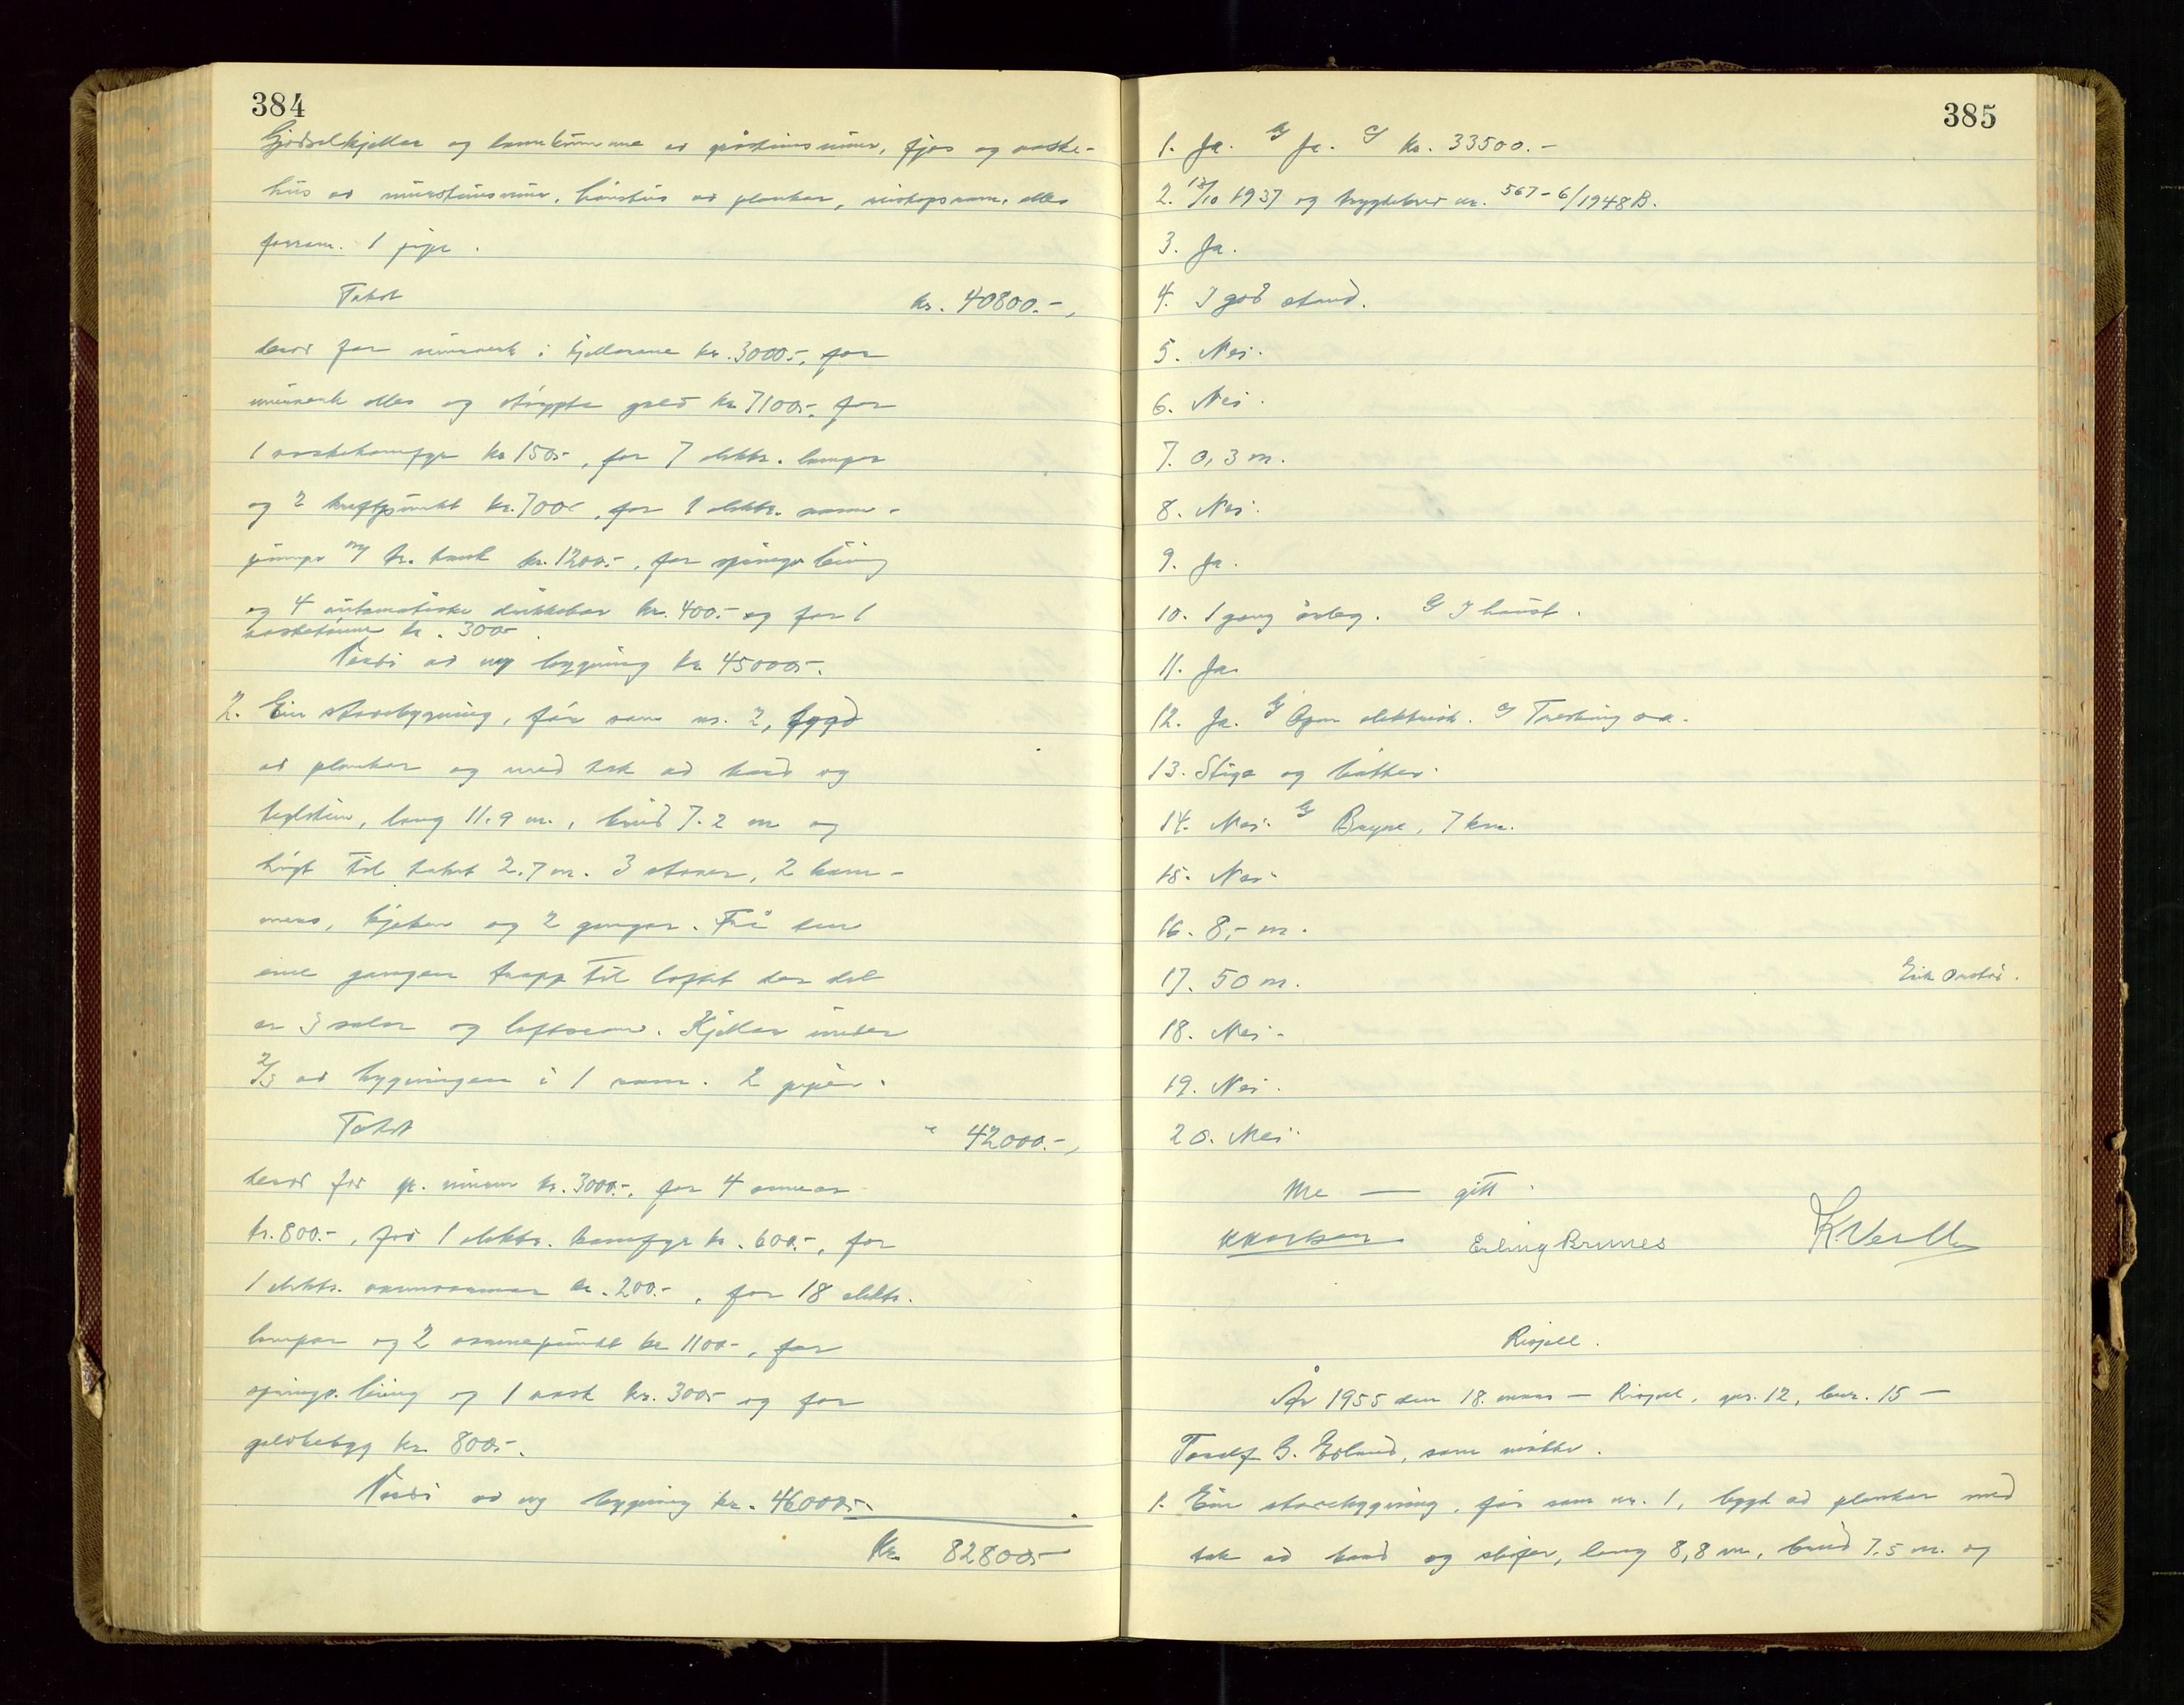 384
Gjødselkjellar og lankumme av gråsteinsmur, fjøs og vaske-
hus av mursteinsmur, haustus av plankar, reistapsrom, elles
forrom. 1 pipe.
Takst kr. 40800.-,
herav for murverk i kjellarane kr. 3000.-, for
murverk elles og støypte golv kr. 7100.- for
1 vaskekomfyr kr 150.-, for 7 elektr. lamper
og 2 kraftpunkt kr. 700.-, for 1 elektr. vass-
pumpe m/ tr. tank kr. 1200.-, for springv. leiing
og 4 automatiske drikkekar kr. 400.- og for 1
vasketønne kr. 300.-
Verdi av ny bygning kr 45000.-
2. Ein stovebygning, før som nr. 2, bygd
av plankar og med tak av bord og
teglstein, lang 11.9 m., breid 7.2 m og
høgt til taket 2.7 m. 3 stover, 2 kam-
mers, kjøken og 2 gangar. Frå den
eine gangen trapp til loftet der det
er 3 salar og loftsrom. Kjellar under
2/3 av bygningen i 1 rom. 2 piper.
Takst " 42000.-,
herav for gr. murar kr. 3000.-, for 4 omnar
kr. 800.-, for 1 elektr. komfyr kr. 600.-, for
1 elektr. vassvarmar kr. 200.-, for 18 elektr.
lampar og 2 varmepunkt kr 1100.-, for
springv. leiing og 1 vask kr. 300.- og for
golvbelegg kr. 800.-.
Verdi av ny bygning kr. 46000.-
Kr. 82800.-
385
1. Ja. G Ja. G kr. 33500.-
2. 12/10 1937 og bygdebrev nr. 567-6/1948 B.
3. Ja.
4. I god stand.
5. Nei.
6. Nei.
7. 0,3 m.
8. Nei.
9. Ja.
10. 1 gang årleg. G I haust.
11. Ja.
12. Ja. G Open elektrisk. G Tresking o.a.
13. Stige og bøtter.
14. Nei. G Bryne, 7 km.
15. Nei.
16. 8,- m.
17. 50 m. Erik
18. Nei.
19. Nei.
20. Nei.
Me — gitt.
Erling Brunes
Risjell.
År 1955 den 18. mars — Risjell, gnr. 12, bnr. 15 —
Torolf G. Erland, som møtte.
1. Ein stovebygning, før som nr. 1, bygd av plankar med
tak av bord og skifer, lang 8,8 m, breid 7,5 m. og